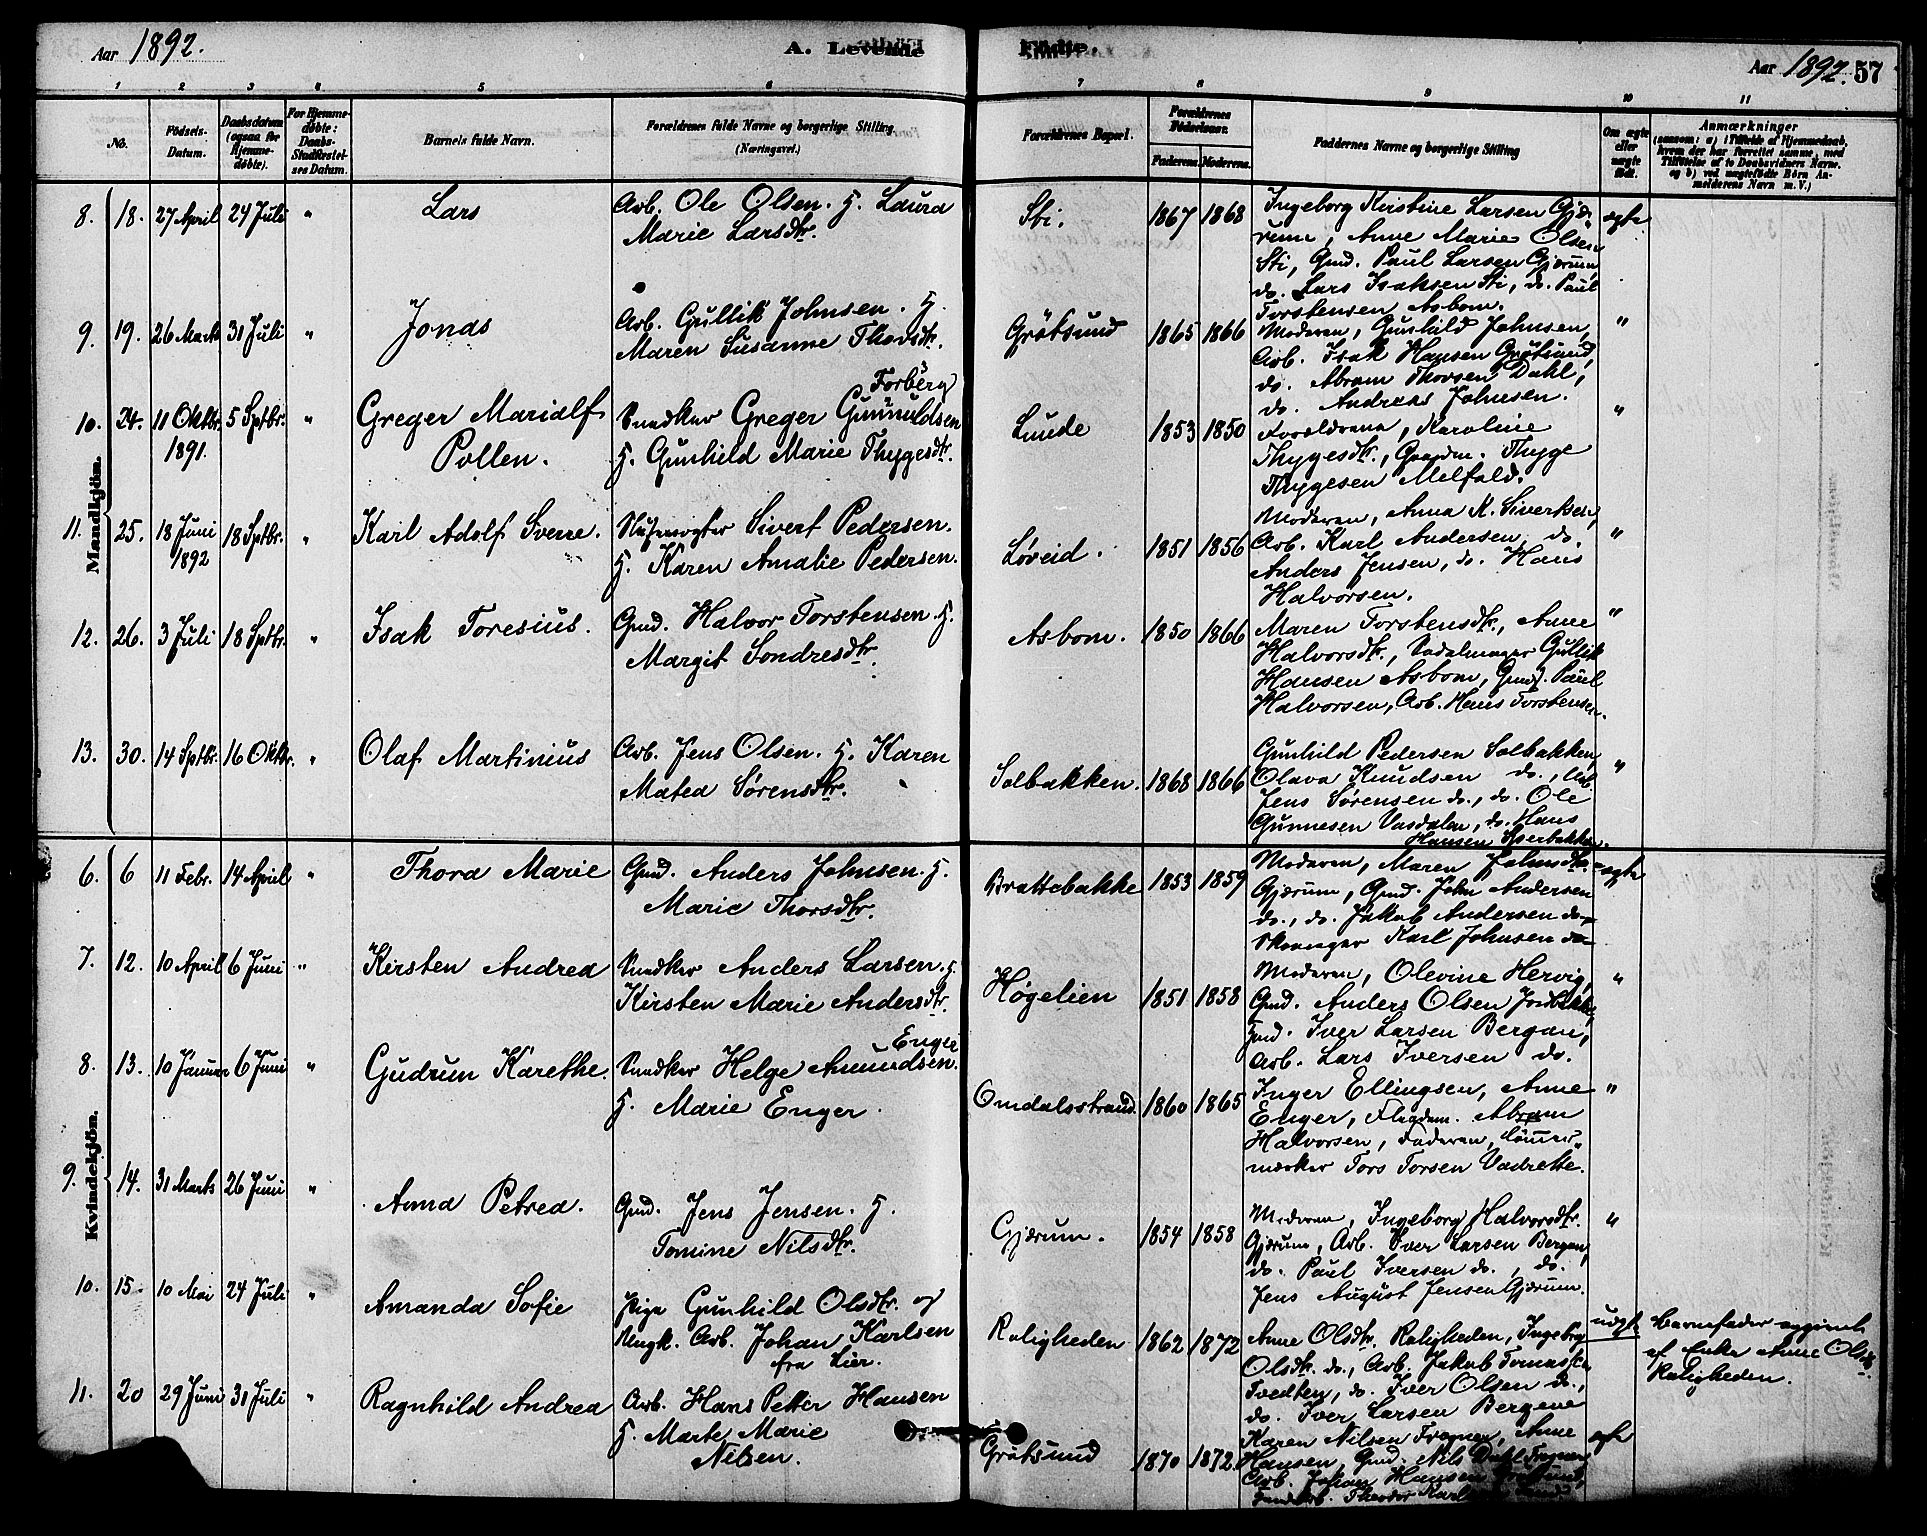 Aar 1892.
A. Levende
Fødte.
Aar 1892. 57
1 2 3 4 5 6 7 8 9 10 11
No.
Födsels-
Datum.
Daabsdatum
(ogsaa for
Hjemme-
døbte).
For Hjemme-
døbte:
Daabs-
Stadfæstel-
ses Datum.
Barnets fulde Navn.
Forældrenes fulde Navne og borgerlige Stilling
(Næringsvei).
Forældrenes Bopæl.
Forældrenes
Födselsaar.
Faderens. Moderens.
Faddernes Navne og borgerlige Stilling
Om ægte
eller
uægte
født.
Anmærkninger
(saasom: a) i Tilfælde af Hjemmedaab,
hvem der har forrettet samme, med
Tilföielse af to Daabsvidners Navne,
og b) ved uægtefödte Börn An-
melderens Navn m. V.)
Mandkjön.
8. 18. 27 April 24 Juli " Lars
Arb. Ole Olsen. H. Laura
Marie Larsdtr.
Sti. 1867 1868
Ingeborg Kirstine Larsen Gjæ-
rum, Anne Marie Olsen
Sti, Gmd. Paul Larsen Gjærum,
do. Lars Isaksen Sti, do. Paul
Torstensen Asbom.
ægte
9. 19. 26 Marts 31 Juli " Jonas
Arb. Gullik Johnsen. H.
Maren Susanne Thorsdtr.
Grøtsund 1865 1866
Moderen, Gunhild Johnsen,
Arb. Isak Hansen Grøtsund,
do. Abram Thorsen Dahl,
do. Andreas Johnsen.
"
10. 24. 11 Oktbr. 5 Septbr. " Greger Marialf
1891. Pollen.
Forberg
Snedker Greger Gunnuldsen
H. Gunhild Marie Thygesdtr.
Lunde 1853 1850
Forældrene, Karoline
Thygesdtr., Gaardm. Thyge
Thygesen Melfald.
"
11. 25. 18 Juni 18 Septbr. " Karl Adolf Sverre.
1892
Slusevogter Sivert Pedersen.
H. Karen Amalie Pedersen.
Løveid. 1851 1856
Moderen, Anna K. Siverksen,
Arb. Karl Andersen, do.
Anders Jensen, do. Hans
Halvorsen.
"
12. 26. 3 Juli 18 Septbr. " Isak Toresius.
Gmd. Halvor Torstensen. H.
Margit Sondresdtr.
Asbom. 1850 1866
Maren Torstensdtr., Anne
Halvorsdtr., Sadelmager Gullik
Hansen Asbom, Gmd. Paul
Halvorsen, Arb. Hans Torstensen.
"
13. 30. 14 Septbr. 16 Oktbr. " Olaf Martinius
Arb. Jens Olsen. H. Karen
Matea Sørensdtr.
Solbakken. 1868 1866
Gunhild Pedersen Solbakken,
Olava Knudsen do., Arb.
Jens Sørensen do., do. Ole
Gunnesen Vasdalen, do. Hans
Hansen
"
Kvindekjön.
6. 6 11 Febr. 14 April " Thora Marie
Gmd. Anders Johnsen. H.
Marie Thorsdtr.
Brattebakke 1853 1859
Moderen, Maren Johnsdtr.
Gjærum, Gmd. John Andersen
do., do. Jakob Andersen do.,
Karl Johnsen do.
ægte
7. 12. 10 April 6 Juni " Kirsten Andrea
Snedker Anders Larsen. H.
Kirsten Marie Andersdtr.
Høgelien 1851 1858
Moderen, Olevine Hervig,
Gmd. Anders Olsen
Gmd. Iver Larsen Bergan,
Arb. Lars Iversen do.
"
8. 13. 10 Januar 6 Juni " Gudrun Karethe.
Enger
Snedker Helge Amundsen.
H. Marie Enger.
Omdalsstrand 1860 1865
Inger Ellingsen, Anne
Enger, Abram
Halvorsen, Faderen, Tømmer-
mærker Tors Torsen Vadrette.
"
9. 14. 31 Marts 26 Juni " Anna Petrea.
Gmd. Jens Jensen. H.
Tomine Nilsdtr.
Gjærum. 1854 1858
Moderen, Ingeborg Halvorsdtr.
Gjærum, Arb. Iver Larsen Bergan,
do. Paul Iversen do., do.
Jens August Jensen Gjærum.
"
10. 15. 10 Mai 24 Juli " Amanda Sofie
Pige Gunhild Olsdtr. og
Ungk. Arb. Johan Karlsen
fra Lier.
Roligheden 1862 1872
Anne Olsdtr. Roligheden, Ingeborg
Olsdtr. do., Arb. Jakob Tomassen
Tvedten, do. Iver Olsen do.,
do. Iver Larsen Bergene
uægte
Barnefader opgivet
af Enke Anne Olsdtr.
Roligheden.
11. 20 29 Juni 31 Juli " Ragnhild Andrea
Arb. Hans Petter Hansen
H. Marte Marie
Nilsen.
Grøtsund 1870 1872.
Karen Nilsen Frogner, Anne
Hansen, Gmd. Nils Dahl Frogner,
Arb. Johan Hansen Grøtsund,
Theodor
ægte